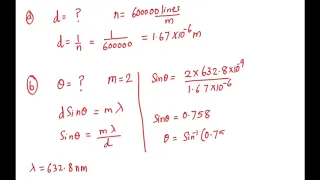 ⓐ d = ? n = 600000 lines/m
d = 1/n = 1/600000 = 1.67 × 10⁻⁶ m
ⓑ θ = ? m = 2
d Sinθ = m λ
Sinθ = mλ/d
λ = 632.8 nm
Sinθ = 2 × 632.8 × 10⁻⁹/1.67 × 10⁻⁶
Sinθ = 0.758
θ = Sin⁻¹(0.75